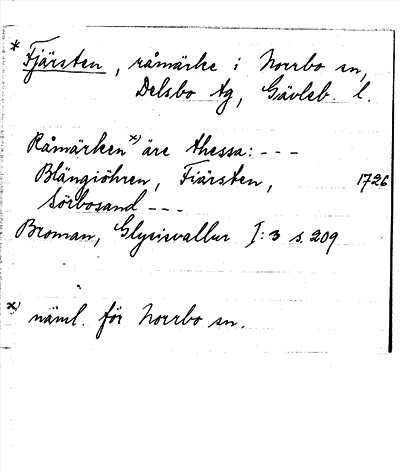 * Fjärsten, råmärke i Norrbo sn,
Delsbo tg, Gävleb. l.
Råmärken x) äre thessa: - - -
Blängiöhren, Fiärsten, 1726
Sörbosand - - -
Broman, Glysisvallur I: 3 s. 209
x) näml. för Norrbo sn.